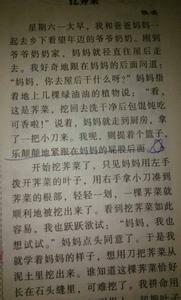 挖荠菜
星期六一大早，我和爸爸妈妈一
起去乡下看望年迈的爷爷奶奶。刚到
爷爷奶奶家，妈妈就径直往屋后走
去。我好奇地跟在妈妈的后面问道：
“妈妈，你去屋后干什么呀？”妈妈指
着地上几棵绿油油的植物说：“看，
这是荠菜，挖回去洗干净后包馄饨吃
可香啦！”说着，妈妈就走到厨房，拿
了一把小刀来。我呢，则提着个篮子，
乐颠颠地紧跟在妈妈的屁股后面。
开始挖荠菜了，只见妈妈用左手
拨开荠菜的叶子，用右手拿小刀凑到
荠菜的根部，轻轻一划，一棵荠菜就
顺利地被挖出来了。看到挖荠菜如此
容易，我也跃跃欲试：“妈妈，我也
想试试。”妈妈点头同意了。于是我
就学着妈妈的样子，想用刀把荠菜从
泥土里挖出来。谁知道这棵荠菜恰好
长在石头缝里，可难挖了。我拼命用